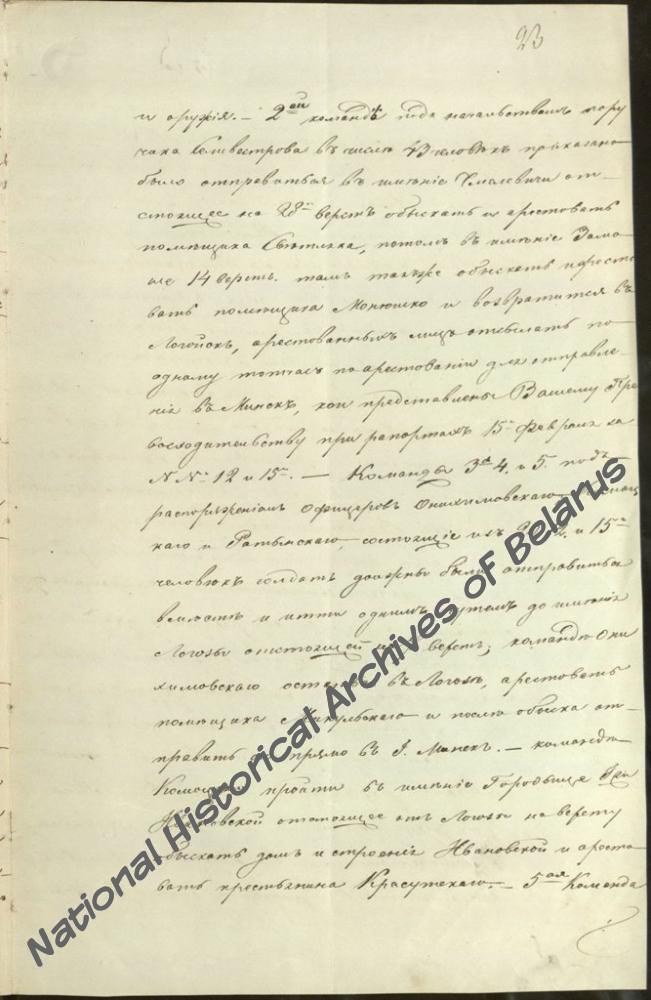 23
и оружія. — 2ой командѣ подъ начальствомъ пору
чика Селивестрова въ числѣ 43 человѣкъ приказано
было отправиться въ имѣніе от-
стоящее на 28 верстъ обыскать и арестовать
помѣщика потомъ въ имѣніе Замо
14 верстъ. тамъ также обыскать и аресто
вать помѣщика Монюшко и возвратится въ
Логойскъ, арестованныхъ лицъ отсылать по
одному тотчасъ по арестованіи для отправле-
нія въ Минскъ, кои представлены Вашему Пре
восходительству при рапортахъ 15 Февраля за
№№ 12 и 15. — Команды 3я 4. и 5. подъ
распоряженіемъ офицеровъ Онихимовскаго
каго и Ратынскаго, состоящіе изъ и 15
человѣкъ солдатъ должны были отправиться
вмѣстѣ и итти однимъ путемъ до имѣнія
Логозы отстоящей верстъ; командѣ Они
химовскаго въ Логозѣ, арестовать
помѣщика и послѣ обыска от-
править прямо въ Г. Минскъ. — командѣ
пройти въ имѣніе Городище
отстоящее отъ Логозы на версту
обыскать домъ и строенія Ивановской и аресто
вать крестьянина Красутскаго. — 5ая Команда
National Historical Archives of Belarus